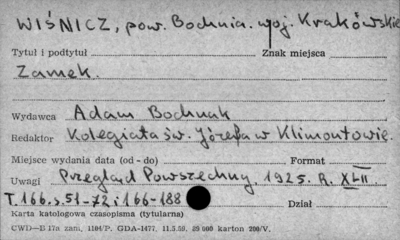 WIŚNICZ, pow. Bochnia. woj. Krakówskie
Tytuł i podtytuł Znak miejsca
Zamek.
Wydawca Adam Bochnak
Redaktor Kolegiata św. Józefa w Klimontowie.
Miejsce wydania data (od - do) Format
Uwagi Przegląd Powszechny, 1925. R. XLII
T. 166. s. 51-72 i 166-188 Dział
Karta katologowa czasopisma (tytularna)
CWD—B 17a zam. 1104/P. GDA-1477, 11.5.50, 25 000 karton 200/V.